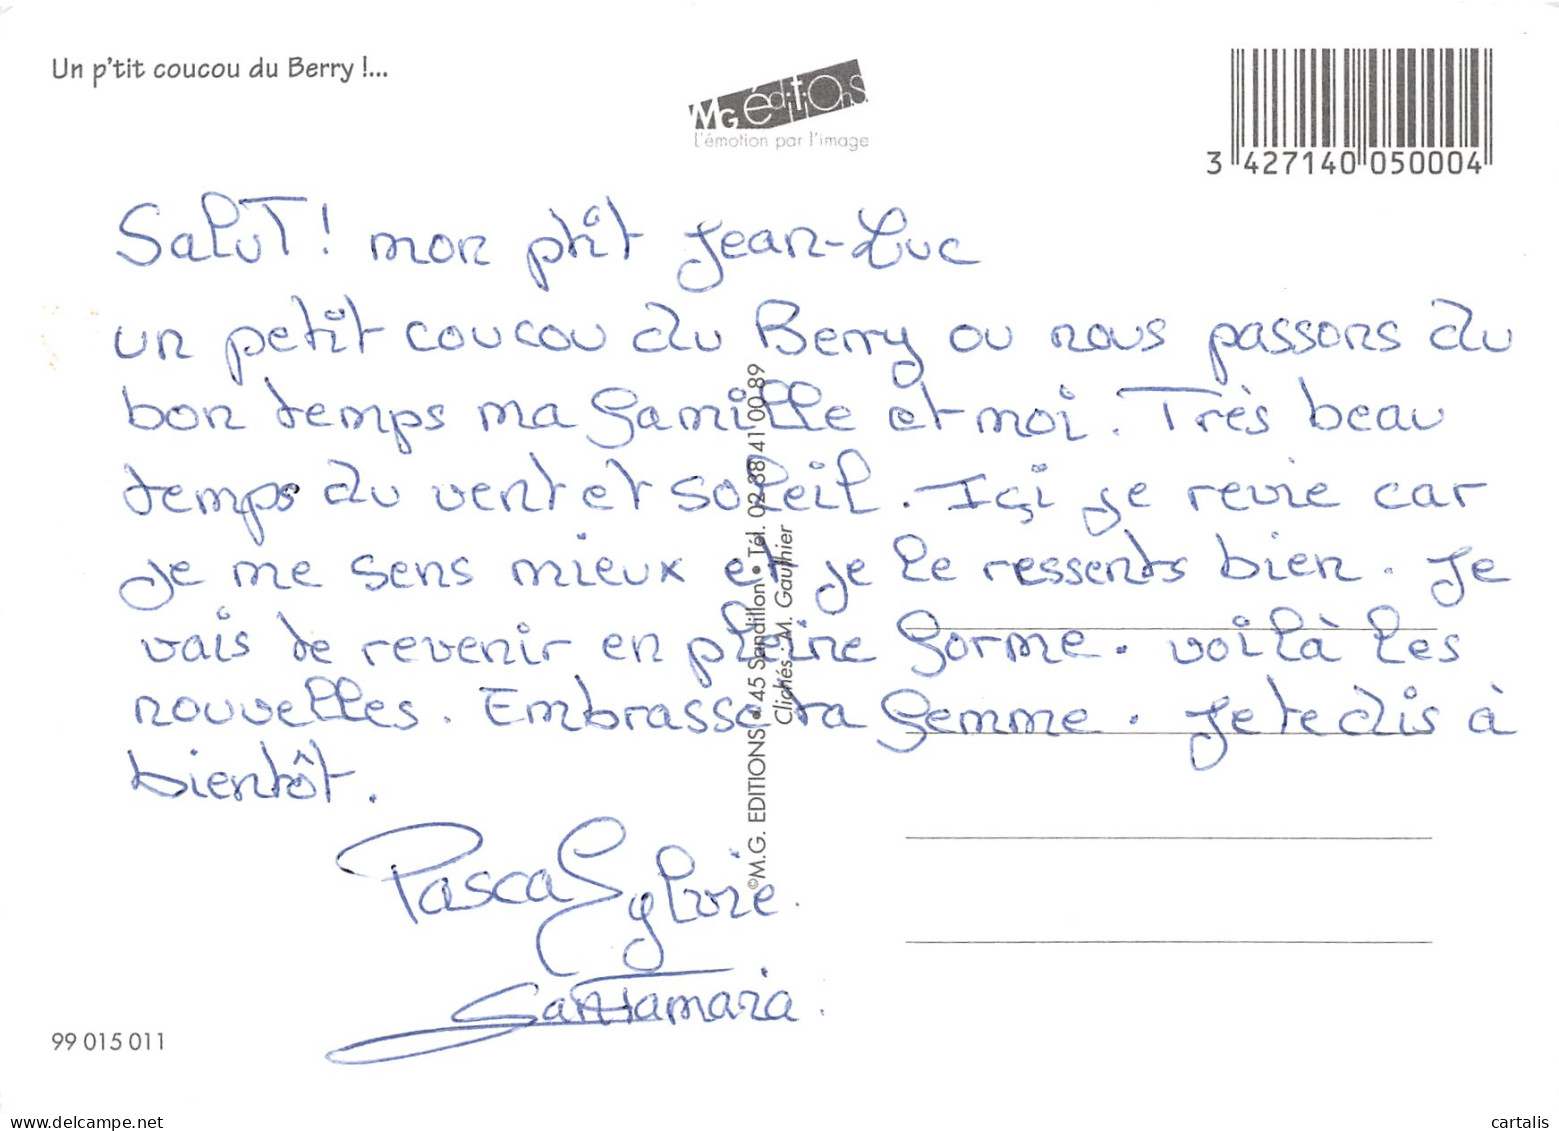 Un p'tit coucou du Berry !...
MG éditions
l'émotion par l'image
3 427140 050004
Salut ! mon ptit Jean-Luc
un petit coucou du Berry ou nous passons du
bon temps ma famille et moi. Très beau
temps du vent et soleil. Içi je revie car
je me sens mieux et je le ressents bien. Je
vais te revenir en pleine forme. voilà les
nouvelles. Embrasse ta femme. Je te dis à
bientôt.
Pascal Sylvie.
Santamaria.
©M.G. EDITIONS • 45 Sandillon • Tél. 02 38 41 00 89
Clichés : M. Gauthier
99 015 011
www.delcampe.net
cartalis